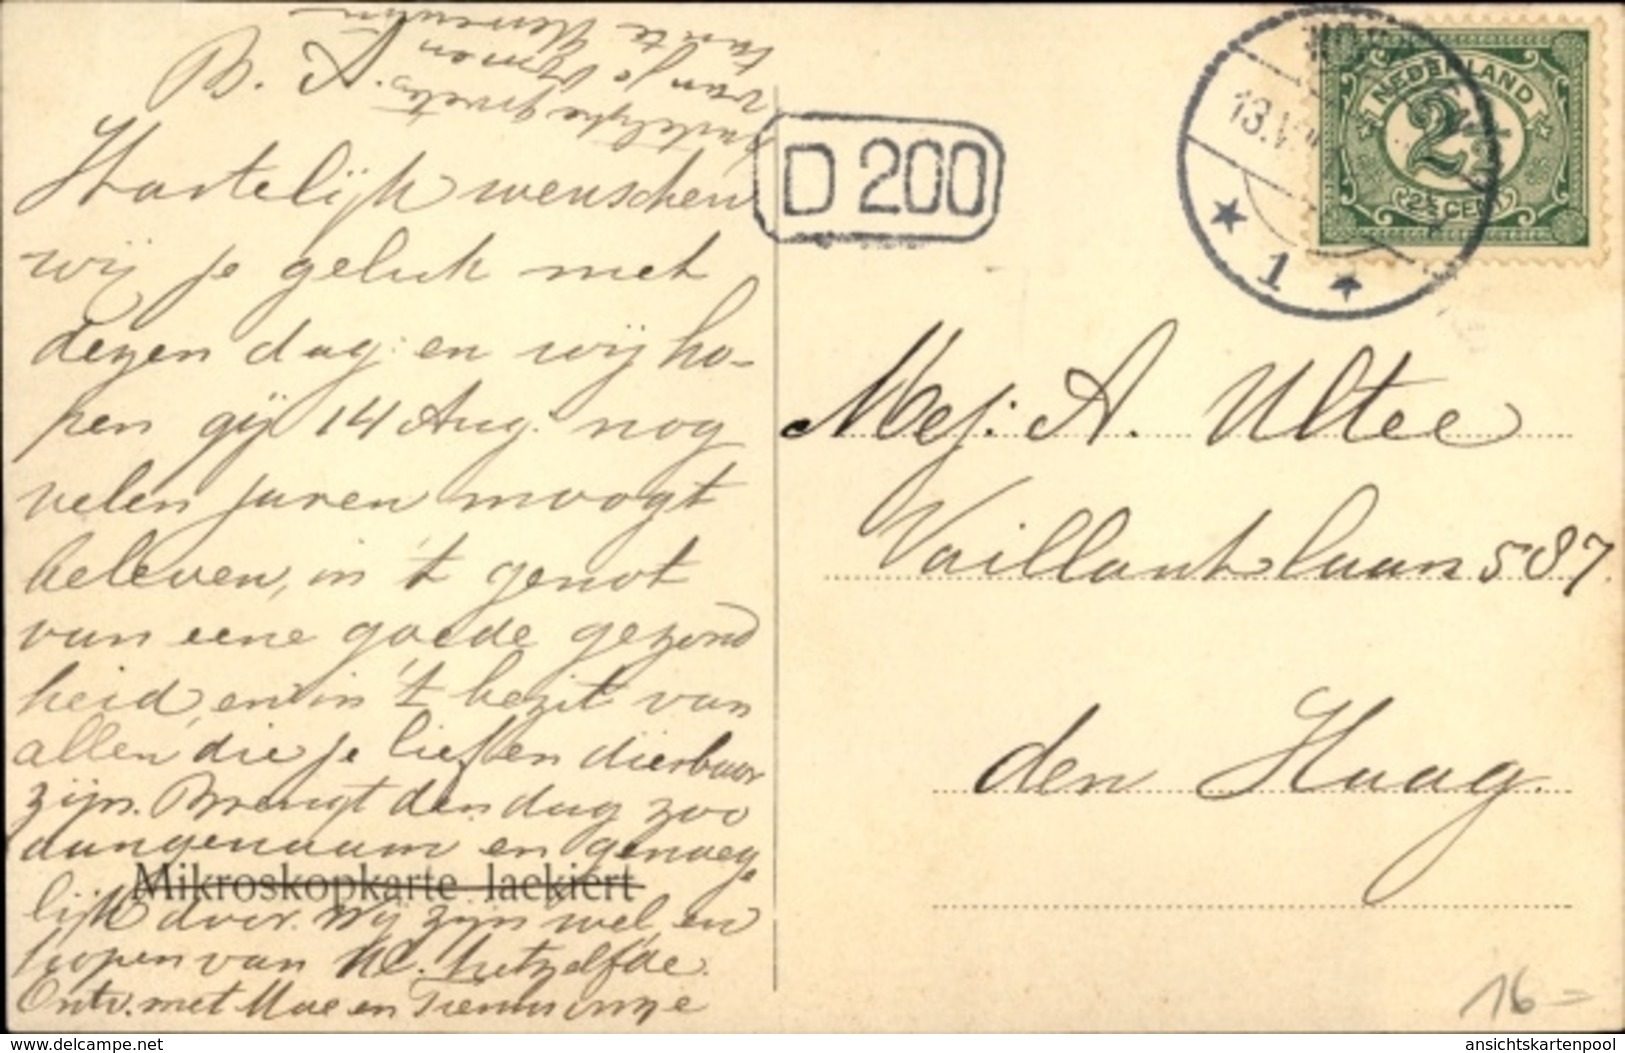 B. A.
Hartelijk wenschen
wij je geluk met
dezen dag: en wij ho-
pen gij 14 Aug. nog
velen jaren moogt
beleven, in 't genot
van eene goede gezond
heid, en in 't bezit van
allen die je lief en dierbaar
zijn. Brengt den dag zoo
aangenaam en genoeg
lijk door. Wij zijn wel, en
hopen van UE. hetzelfde.
Ontv. met Moe en
Hartelijke groeten
van je
tante
Mikroskopkarte lackiert
D 200
NEDERLAND
2½
2½ CENT
13.V
1
Mej: A. Ultee
Vaillantlaan 587.
den Haag.
16 =
delcampe.net
ansichtskartenpool